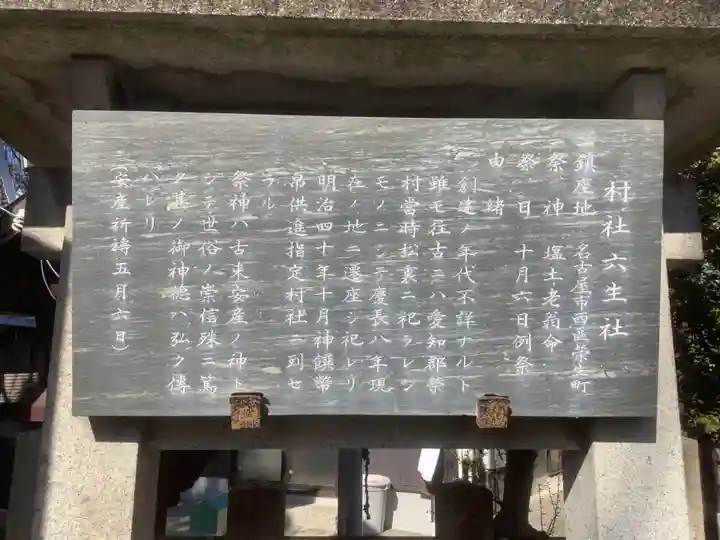 村社六生社
鎮座地 名古屋市西區榮生町
祭神 塩土老翁命
祭日 十月六日例祭
由緒
創建ノ年代不詳ナルト
雖モ往古ニハ愛知郡榮
村當時松裏ニ祀ラレシ
モノニシテ慶長八年現
在ノ地ニ遷座シ祀レリ
明治四十年十月神饌幣
帛供進指定村社ニ列セ
ラル
祭神ハ古来安産ノ神ト
シテ世俗ノ崇信殊ニ篤
ク其ノ御神徳ハ弘ク傳
ハレリ
(安産祈祷五月六日)